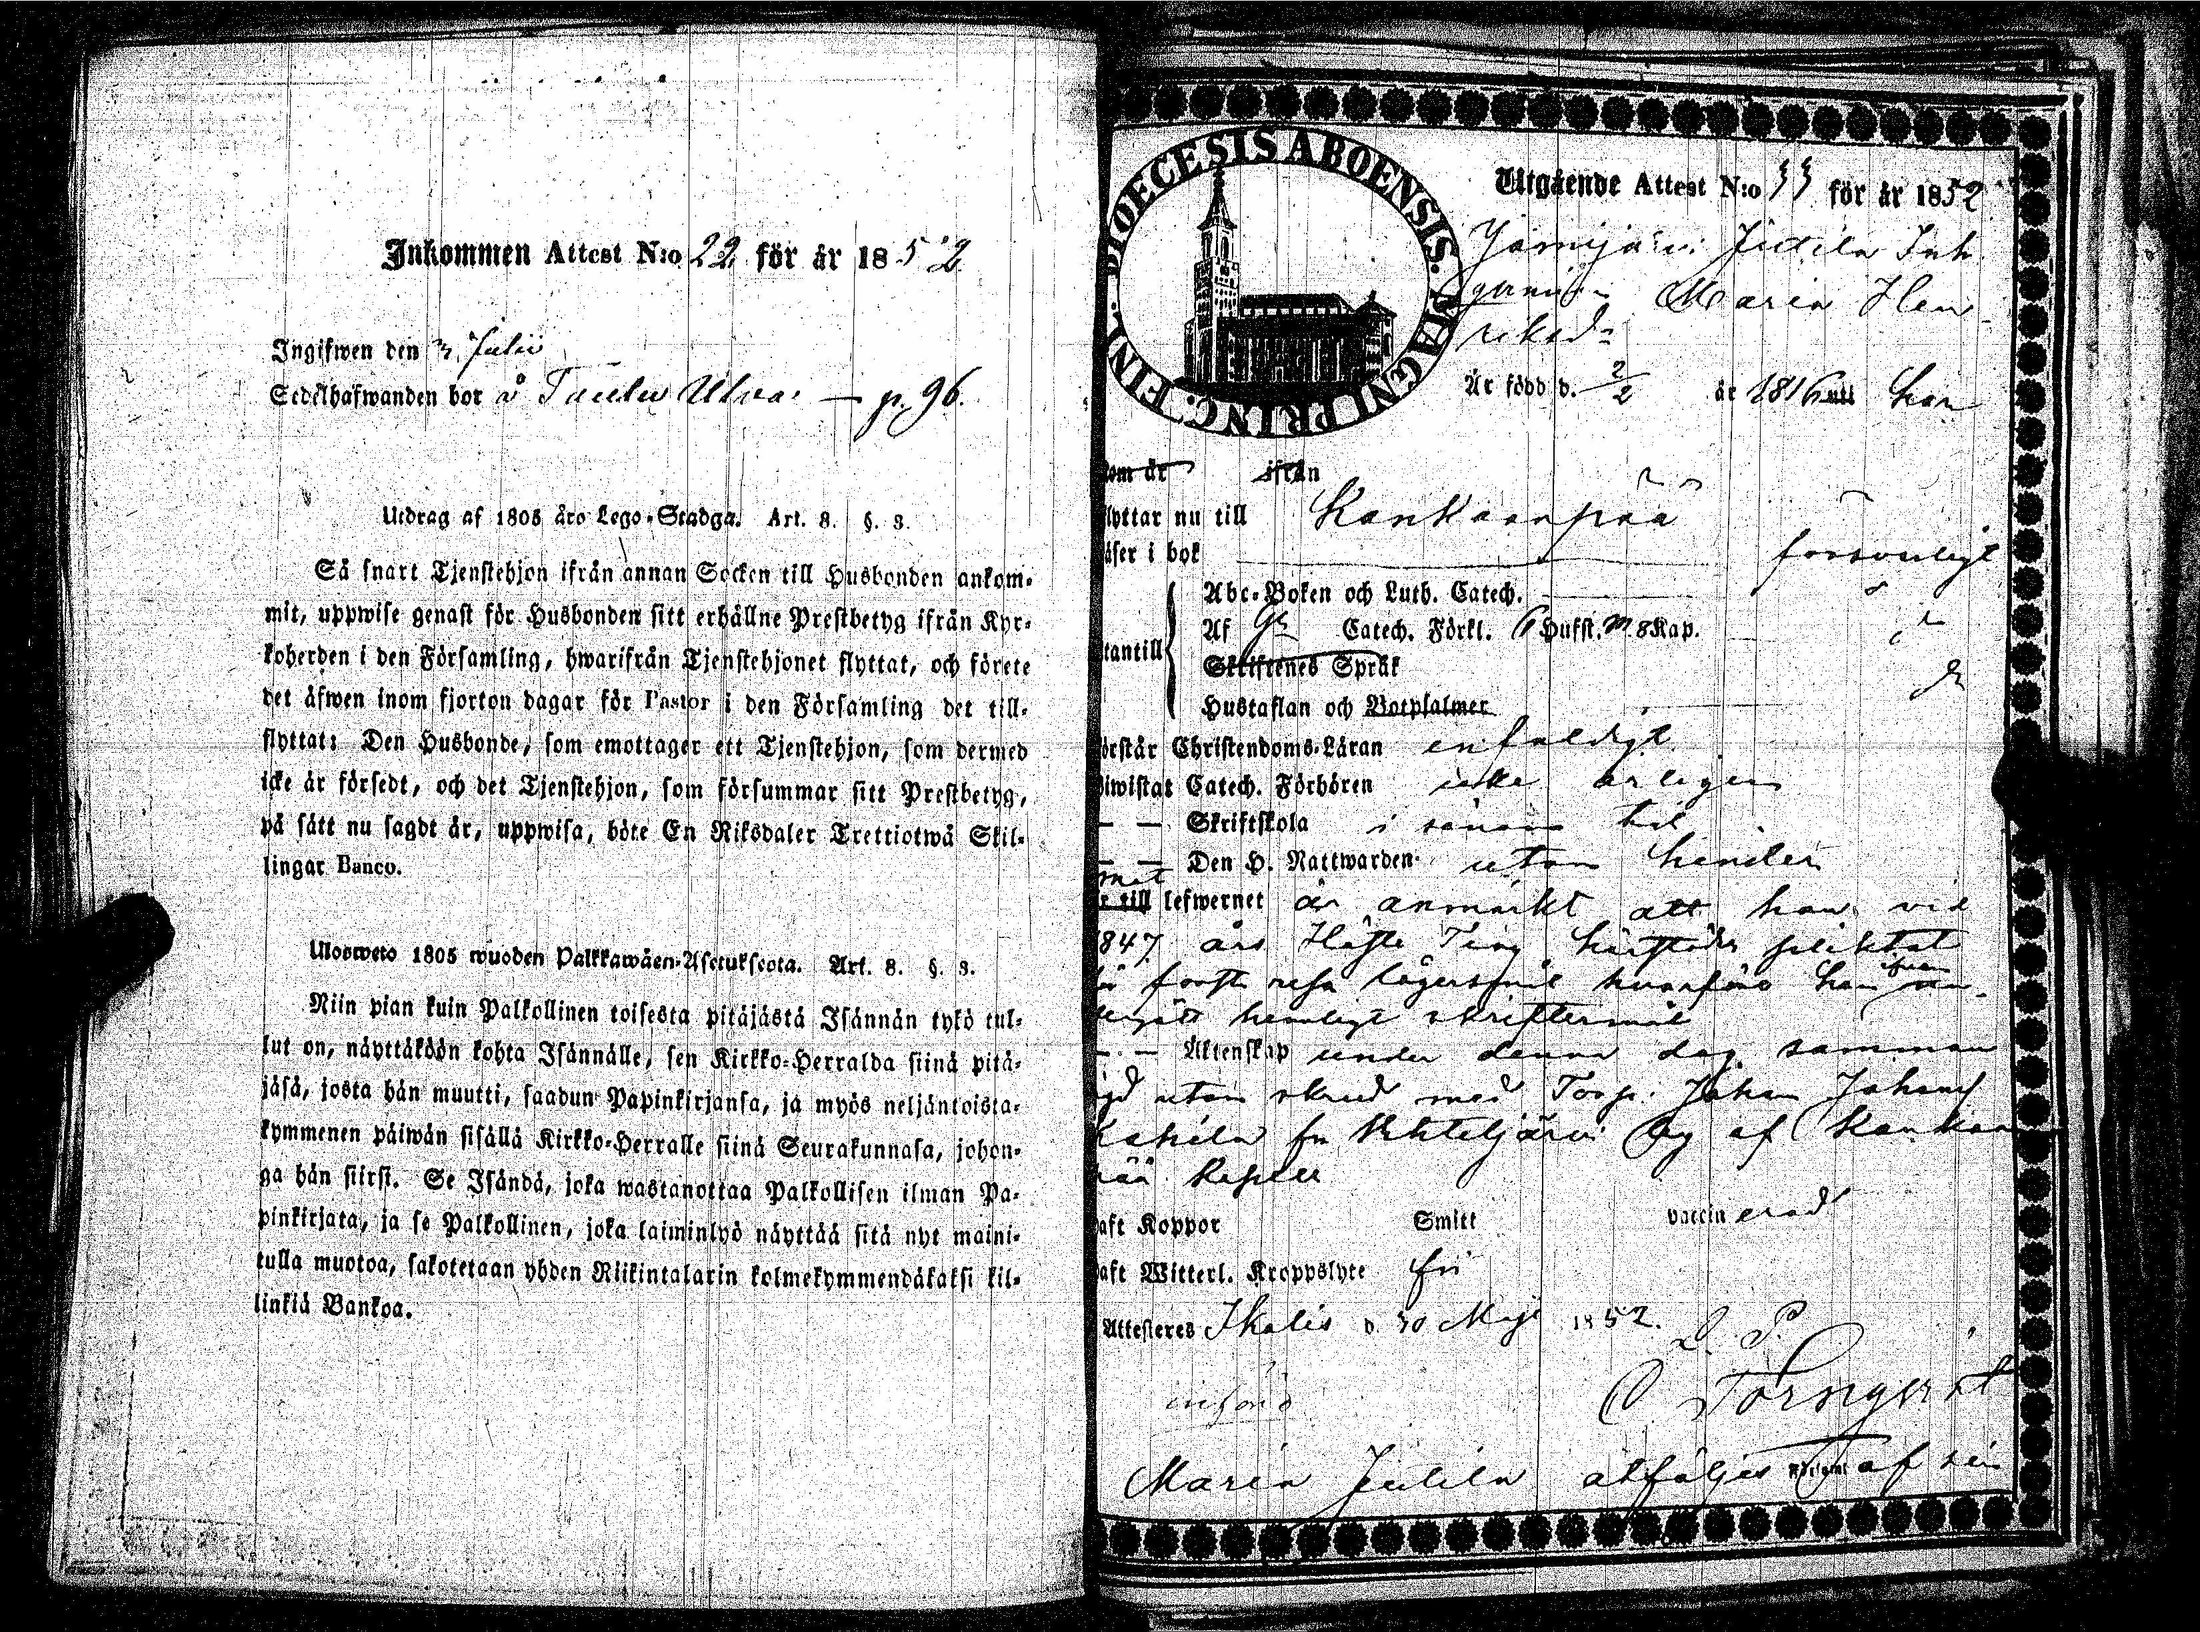 Inkommen Attest N:o 22 för år 1852
Ingifwen den 3 Julii
Sedelhafwanden bor å Taulu Ulva — p. 96.
Utdrag af 1805 års Lego-Stadga. Art. 8. §. 3.
Så snart Tjenstehjon ifrån annan Socken till Husbonden ankom-
mit, uppwise genast för Husbonden sitt erhållne Prestbetyg ifrån Kyr-
koherden i den Församling, hwarifrån Tjenstehjonet flyttat, och förete
det äfwen inom fjorton dagar för Pastor i den Församling det till-
flyttat: Den Husbonde, som emottager ett Tjenstehjon, som dermed
icke är försedt, och det Tjenstehjon, som försummar sitt Prestbetyg,
på sätt nu sagdt är, uppwisa, böte En Riksdaler Trettiotwå Skil-
lingar Banco.
Ulosweto 1805 wuoden Palkkawäen-Asetuksesta. Art. 8. §. 3.
Niin pian kuin Palkollinen toisesta pitäjästä Isännän tykö tul-
lut on, näyttäköön kohta Isännälle, sen Kirkko-Herralda siinä pitä-
jäsä, josta hän muutti, saadun Papinkirjansa, ja myös neljäntoista-
kymmenen päiwän sisällä Kirkko-Herralle siinä Seurakunnasa, johon-
ga hän siirsi. Se Isändä, joka wastanottaa Palkollisen ilman Pa-
pinkirjata, ja se Palkollinen, joka laiminlyö näyttää sitä nyt maini-
tulla muotoa, sakotetaan yhden Riikintalarin kolmekymmendäkaksi kil-
linkiä Bankoa.
DIOECESIS ABOENSIS. MAGNI PRINC. FINL.
Utgående Attest N:o 33 för år 1852
Jämijärvi Jutila Inh.
Maria Hen-
riksd:r
Är född d. 2/2 år 1816 hon
kom år ifrån
flyttar nu till Kankaanpää
läser i bok försvarligt
Abc-Boken och Luth. Catech.
Af Catech. Förkl. 6 Hufst. m. 8 Kap.
utantill
Skriftenes Språk
Hustaflan och Botpsalmer
förstår Christendoms-Läran enfaldigt
Biwistat Catech. Förhören icke årligen
— — Skriftskola i senare tid
— — Den H. Nattwarden utan hinder
met till lefwernet är anmärkt att hon vid
1847 års Höste Ting härstädes pliktat
för första resan lägersmål hvarföre hon
hemligt skriftermål
— — Äktenskap under denna dag samman
vigd utan skrud med Torp. Johan Johansf
fr Vihteljärvi by af Kankaan
pää kapell
haft Koppor Smitt vaccinerad
haft Witterl. Kroppslyte fri
Attesteres Ikalis d. 30 Maji 1852.
L. P.
införd
O Törnqvist
Maria Jutila åtföljes af sin